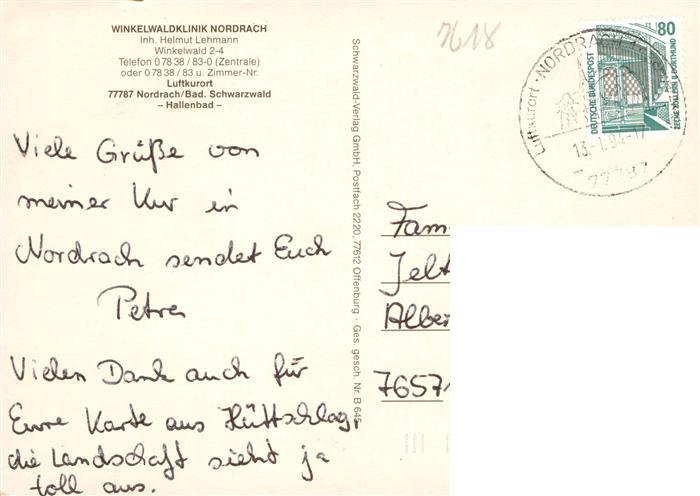 WINKELWALDKLINIK NORDRACH
Inh. Helmut Lehmann
Winkelwald 2-4
Telefon 0 78 38 / 83-0 (Zentrale)
oder 0 78 38 / 83 u. Zimmer-Nr.
Luftkurort
77787 Nordrach/Bad. Schwarzwald
– Hallenbad –
Viele Grüße von
meiner Kur in
Nordrach sendet Euch
Petra
Vielen Dank auch für
Eure Karte aus Hüttschlag,
die Landschaft sieht ja
toll aus.
Schwarzwald-Verlag GmbH, Postfach 2220, 77612 Offenburg · Ges. gesch. Nr. B 645
7618
Luftkurort · NORDRACH
13.-1.94-17
77787
80
DEUTSCHE BUNDESPOST
ZECHE ZOLLERN II · DORTMUND
Fam
Jelt
Alber
76571